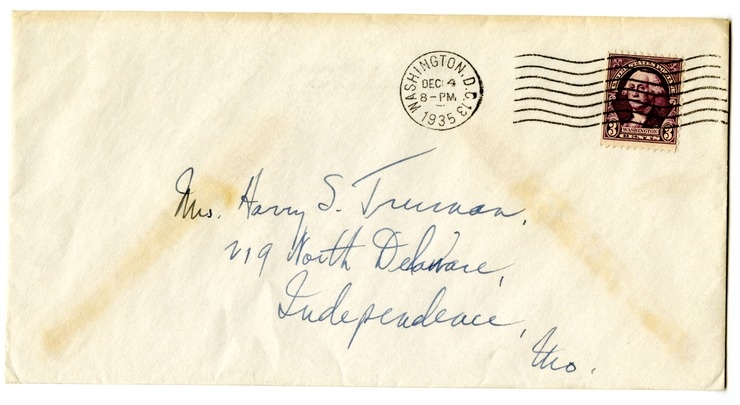 WASHINGTON, D.C. 13
DEC 4
8-PM
1935
UNITED STATES POSTAGE
3 WASHINGTON 3
Mrs. Harry S. Truman,
219 North Delaware,
Independence,
Mo.